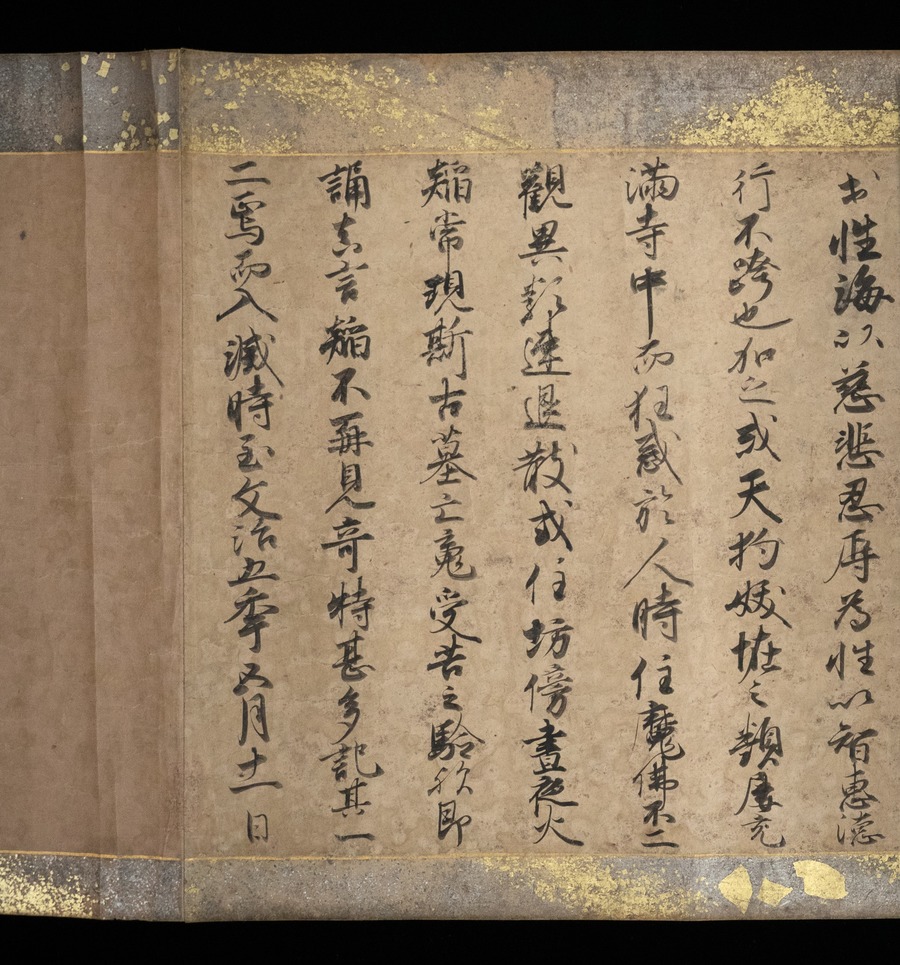 於性海以慈悲忍辱為性以智恵徳
行不跨也加之或天狗妖恠之類屡充
満寺中而狂惑於人時住魔佛不二
觀異類速退散或住坊傍晝夜火
焔常現斯古墓亡竟受苦之驗欤即
誦真言焔不再見奇特甚多記其一
二焉而入滅時至文治五季五月十一日